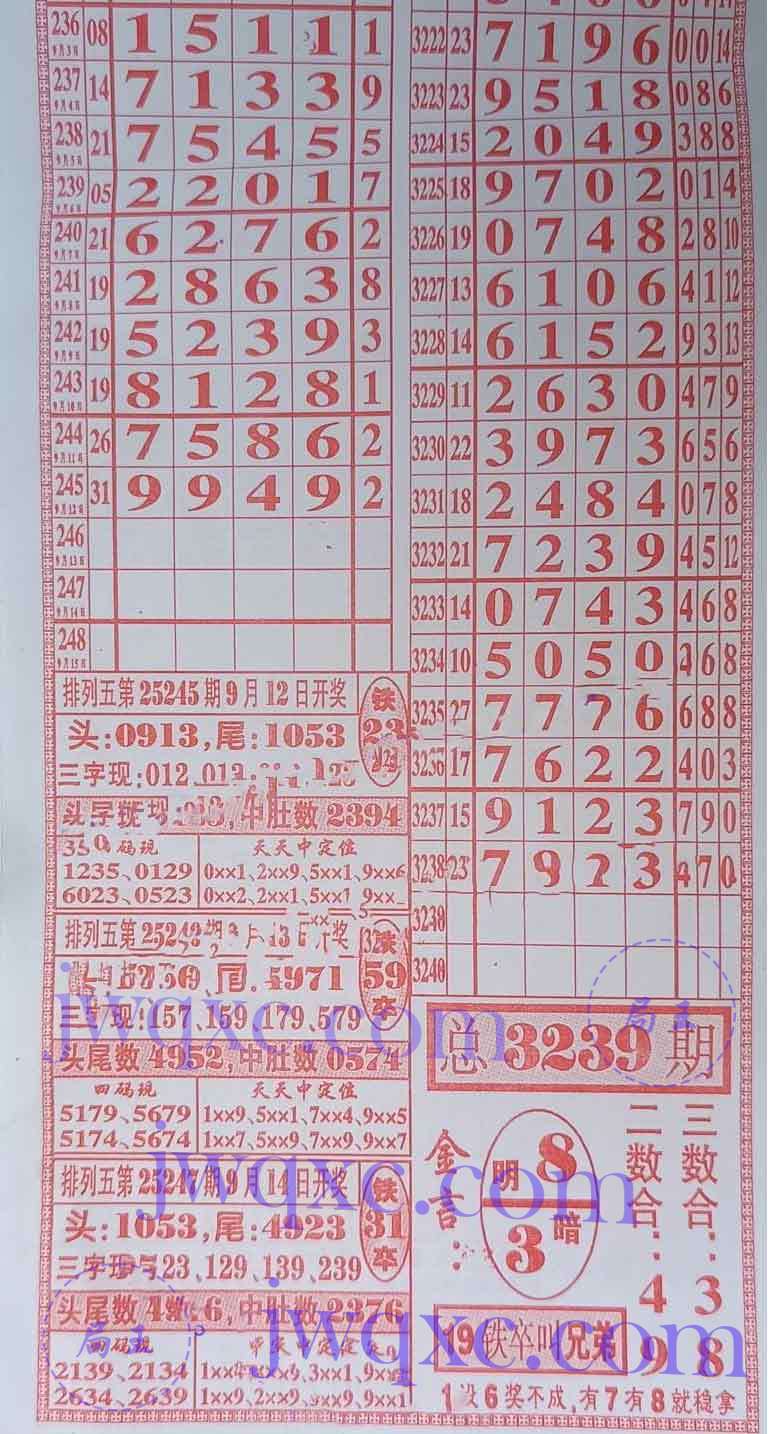 236 9月3日 08 1 5 1 1 1
237 9月4日 14 7 1 3 3 9
238 9月5日 21 7 5 4 5 5
239 9月6日 05 2 2 0 1 7
240 9月7日 21 6 2 7 6 2
241 9月8日 19 2 8 6 3 8
242 9月9日 19 5 2 3 9 3
243 9月10日 19 8 1 2 8 1
244 9月11日 26 7 5 8 6 2
245 9月12日 31 9 9 4 9 2
246 9月13日
247 9月14日
248 9月15日
排列五第25245期9月12日开奖
头:0913,尾:1053
铁 23 卒
三字现:012
中肚数2394
四码现 天天中定位
1235、0129 0××1、2××9、5××1、9××6
6023、0523 0××2、2××1、5××1 9××
排列五第
尾 5971
铁 59 卒
157、159 179、579
头尾数4952,中肚数0574
四码现 天天中定位
5179、5679 1××9、5××1、7××4、9××5
5174、5674 1××7、5××9、7××9、9××7
排列五第25247期9月14日开奖
头:1053,尾:4923
铁 31 卒
三字现 23、129、139、239
头尾数4 6,中肚数2376
四码现 天天中定位
2139、2134 3××1、9××
2634、2639 1××9、2××9、 ××9、9××1
3222 23 7 1 9 6 0 0 14
3223 23 9 5 1 8 0 8 6
3224 15 2 0 4 9 3 8 8
3225 18 9 7 0 2 0 1 4
3226 19 0 7 4 8 2 8 10
3227 13 6 1 0 6 4 1 12
3228 14 6 1 5 2 9 3 13
3229 11 2 6 3 0 4 7 9
3230 22 3 9 7 3 6 5 6
3231 18 2 4 8 4 0 7 8
3232 21 7 2 3 9 4 5 12
3233 14 0 7 4 3 4 6 8
3234 10 5 0 5 0 6 8
3235 27 7 7 7 6 6 8 8
3236 17 7 6 2 2 4 0 3
3237 15 9 1 2 3 7 9 0
3238 23 7 9 3 4 7 0
3240
总3239期
金言:
明 8
3 暗
二数合:49
三数合:38
19铁卒叫兄弟
1没6奖不成,有7有8就稳拿
jwqxc.com
jwqxc.com
jwqxc.com
局王
局王